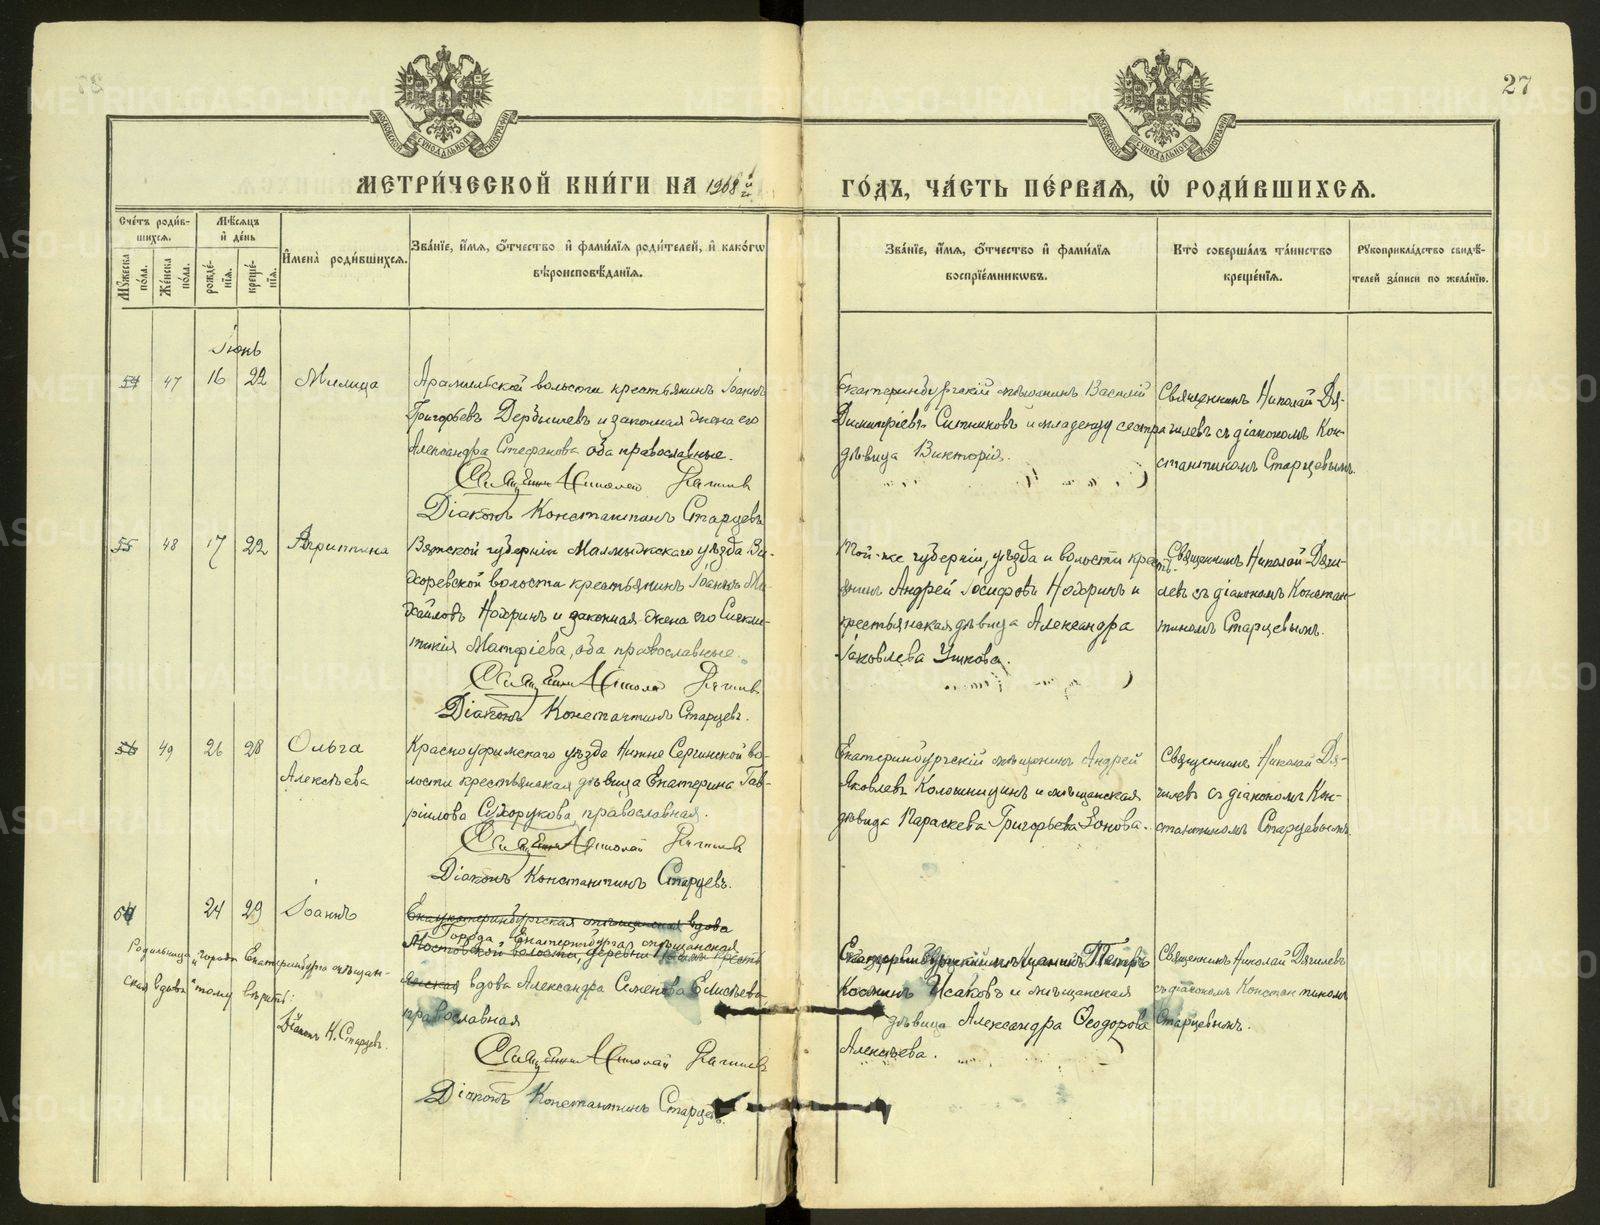 27
МЕТРИ́ЧЕСКОЙ КНИ́ГИ НА 1908 й г.
ГО́ДЪ, ЧА́СТЬ ПЕ́РВАЯ, Ѡ РОДИ́ВШИХСЯ.
Сче́тъ роди́в-
шихся.
Мѣ́сяцъ
и де́нь
Имена́ роди́вшихся.
Зва́нїе, и́мя, о́тчество и фами́лїя роди́телей, и како́гѡ
вѣроисповѣ́данїя.
Зва́нїе, и́мя, о́тчество и фами́лїя
воспрїе́мникѡвъ.
Кто̀ соверша́лъ та́инство
креще́нїя.
Рꙋкоприкла́дство свидѣ́-
телей за́писи по жела́нїю.
Мꙋжеска по́ла.
Же́нска по́ла.
рожде́-
нїя.
креще́-
нїя.
Іюнь
54 47 16 22 Милица
Арамильской волости крестьянинъ Іоаннъ
Григорьевъ Дербышевъ и законная жена его
Александра Стефанова оба православные.
Священникъ Николай Дягилевъ
Діаконъ Константинъ Старцевъ
Екатеринбургскій мѣщанинъ Василій
Димитріевъ Ситниковъ и младенцу сестра
дѣвица Викторія.
Священникъ Николай Дя-
гилевъ съ діакономъ Кон-
стантиномъ Старцевымъ.
55 48 17 22 Агриппина
Вятской губерніи Малмыжскаго уѣзда
волости крестьянинъ Іоаннъ Ми-
хайловъ Нохринъ и законная жена его Синкли-
тикія Матфіева, оба православные.
Священникъ Николай Дягилевъ
Діаконъ Константинъ Старцевъ.
Той-же губерніи, уѣзда и волости кресть-
янинъ Андрей Іосифовъ Нохринъ и
крестьянская дѣвица Александра
Іаковлева Ушкова.
Священникъ Николай Дяги-
левъ съ діакономъ Констан-
тиномъ Старцевымъ.
56 49 26 28 Ольга
Алексѣева
Красноуфимскаго уѣзда Нижне Сергинской во-
лости крестьянская дѣвица Екатерина Гав-
ріилова Сухорукова, православная.
Священникъ Николай Дягилевъ
Діаконъ Константинъ Старцевъ.
Екатеринбургскій мѣщанинъ Андрей
Яковлевъ Колошницинъ и мѣщанская
дѣвица Параскева Григорьева Зонова.
Священникъ Николай Дя-
гилевъ съ діакономъ Кон-
стантиномъ Старцевымъ.
24 29 Іоаннъ
Екатеринбургская мѣщанская вдова
Города Екатеринбурга мѣщанская
Мостовской волости, деревни кресть
янская вдова Александра Семенова Елисѣева
православная
Священникъ Николай Дягилевъ
Діаконъ Константинъ Старцевъ.
Родильница "города Екатеринбурга мѣщан-
ская вдова" тому вѣрить:
Діаконъ К. Старцевъ.
Екатеринбургскій мѣщанинъ Петръ
Косминъ Исаковъ и мѣщанская
дѣвица Александра Ѳеодорова
Алексѣева.
Священникъ Николай Дягилевъ
съ діакономъ Константиномъ
Старцевымъ.